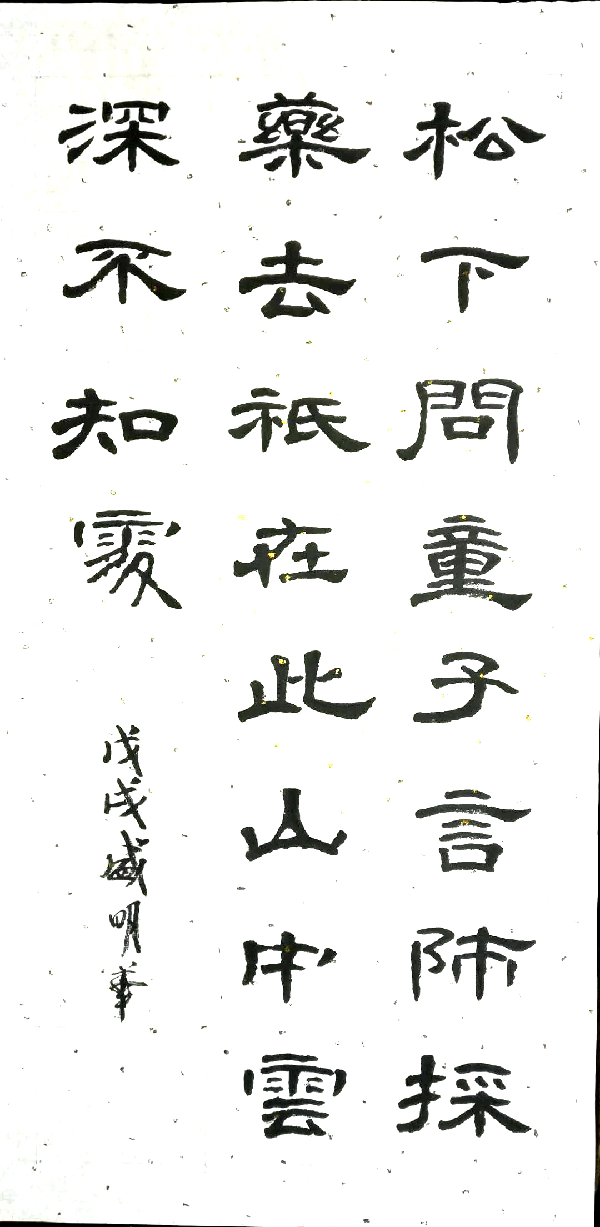 松下問童子言師採
藥去祗在此山中雲
深不知處
戊戌盛明華